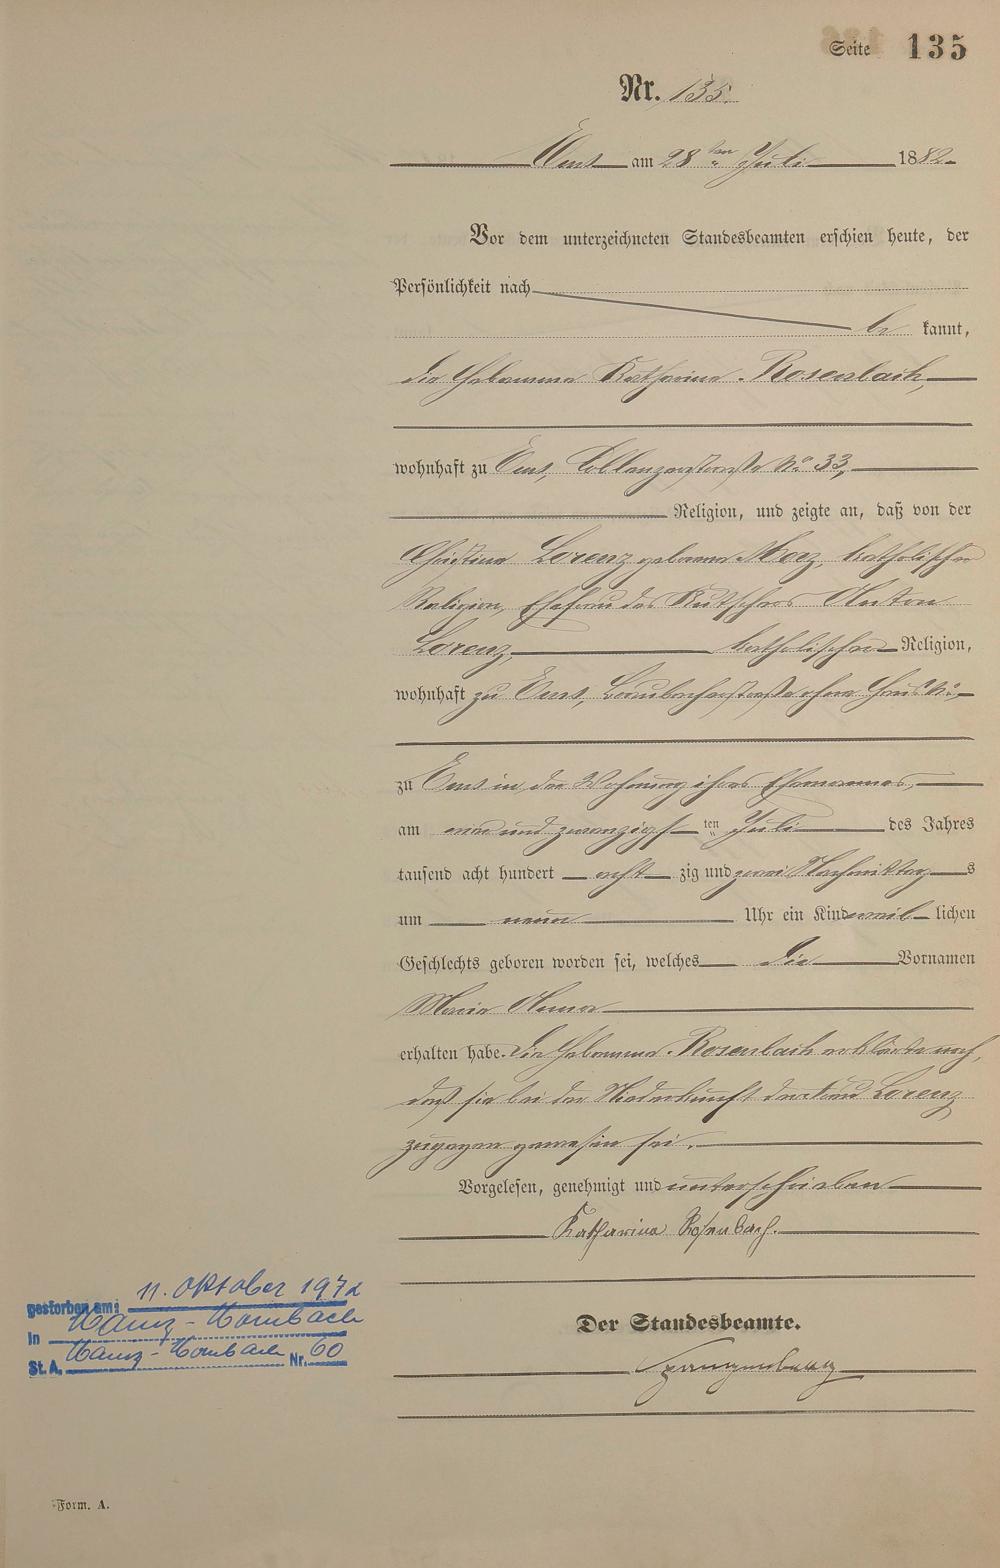 Seite 135
Nr. 135.
Ems am 28ten Juli 1882.
Vor dem unterzeichneten Standesbeamten erschien heute, der
Persönlichkeit nach
be kannt,
die Hebamme Katharina Rosenbach,
wohnhaft zu Ems, Coblenzerstraße No 33,
Religion, und zeigte an, daß von der
Christine Lorenz geborene Morz, katholischer
Religion, Ehefrau des Kutschers Anton
Lorenz, katholischer Religion,
wohnhaft zu Ems, straße ohne Haus No,
zu Ems in der Wohnung ihres Ehemannes,
am ein und zwanzigsten Juli des Jahres
tausend acht hundert acht zig und zwei Nachmittags
um neun Uhr ein Kind weib lichen
Geschlechts geboren worden sei, welches die Vornamen
Maria Anna
erhalten habe. Die Hebamme Rosenbach erklärte noch,
daß sie bei der Niederkunft der Frau Lorenz
zugegen gewesen sei.
Vorgelesen, genehmigt und unterschrieben
Katharina Rosenbach.
Der Standesbeamte.
Spangenberg
gestorben am: 11. Oktober 1972
in Mainz-Mombach
St. A. Mainz-Mombach Nr. 60
Form. A.